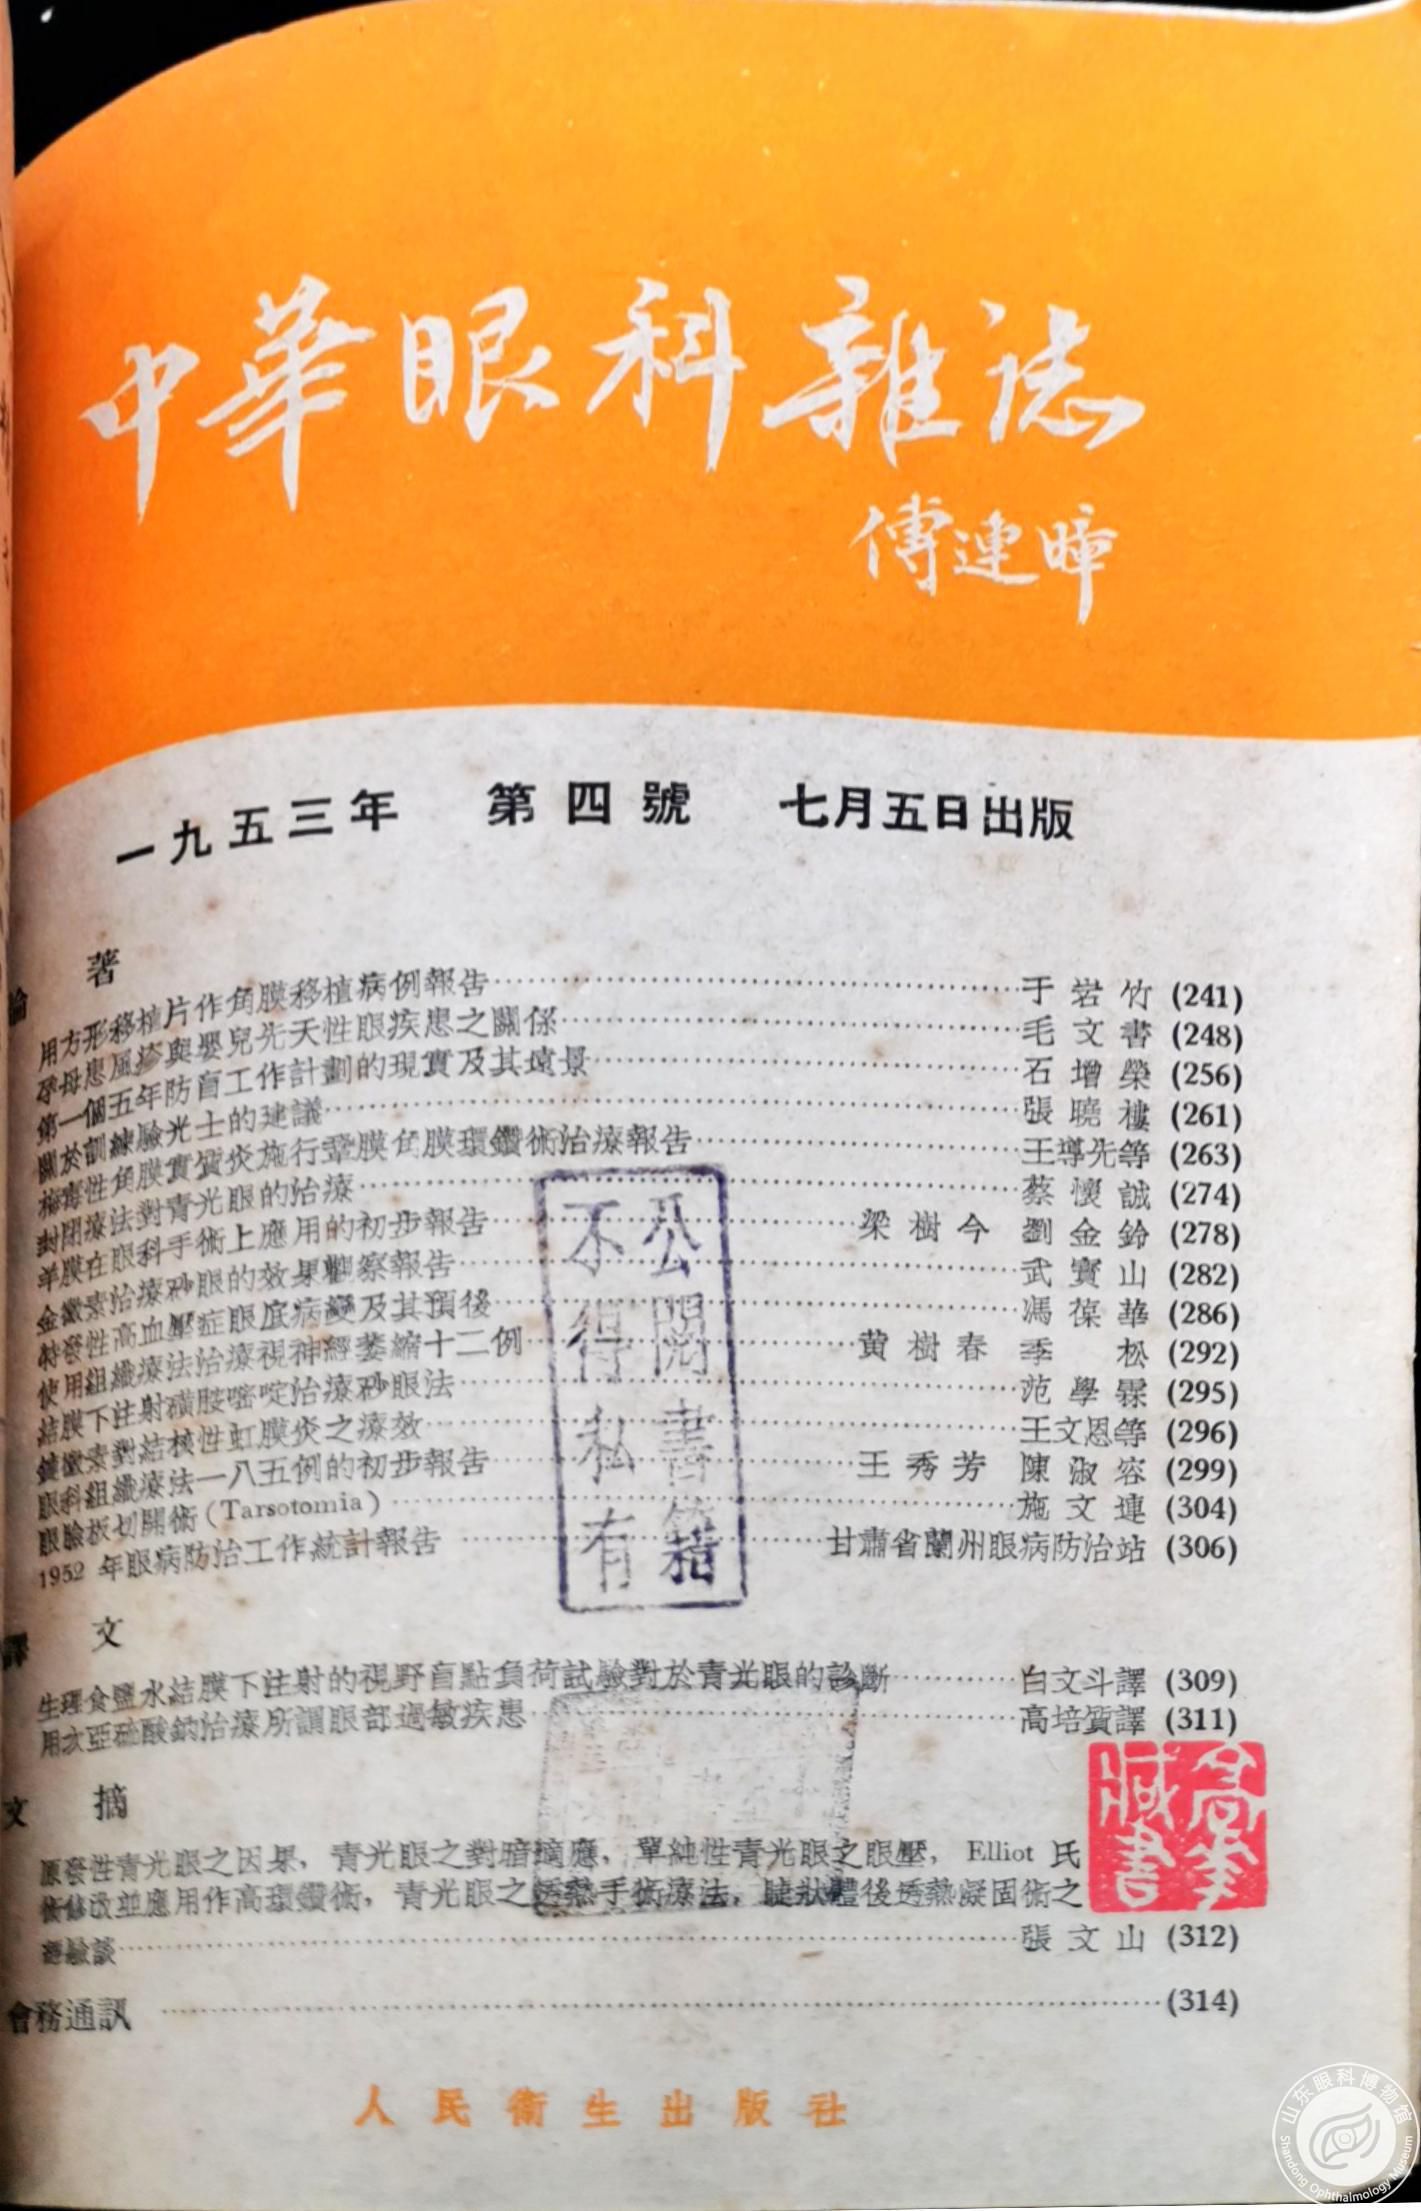 中華眼科雜誌
傅連暲
一九五三年 第四號 七月五日出版
論 著
用方形移植片作角膜移植病例報告 于岩竹 (241)
孕母患風疹與嬰兒先天性眼疾患之關係 毛文書 (248)
第一個五年防盲工作計劃的現實及其遠景 石增榮 (256)
關於訓練驗光士的建議 張曉樓 (261)
梅毒性角膜實質炎施行鞏膜角膜環鑽術治療報告 王導先等 (263)
封閉療法對青光眼的治療 蔡懷誠 (274)
羊膜在眼科手術上應用的初步報告 梁樹今 劉金鈴 (278)
金黴素治療砂眼的效果觀察報告 武寶山 (282)
特發性高血壓症眼底病變及其預後 馮葆華 (286)
使用組織療法治療視神經萎縮十二例 黄樹春 季松 (292)
結膜下注射磺胺嘧啶治療砂眼法 范學霖 (295)
鏈黴素對結核性虹膜炎之療效 王文恩等 (296)
眼科組織療法一八五例的初步報告 王秀芳 陳淑容 (299)
眼瞼板切開術(Tarsotomia) 施文連 (304)
1952 年眼病防治工作統計報告 甘肅省蘭州眼病防治站 (306)
譯 文
生理食鹽水結膜下注射的視野盲點負荷試驗對於青光眼的診斷 白文斗譯 (309)
用次亞硫酸鈉治療所謂眼部過敏疾患 高培質譯 (311)
文 摘
原發性青光眼之因果，青光眼之對暗適應，單純性青光眼之眼壓，Elliot 氏
術修改並應用作高環鑽術，青光眼之透熱手術療法，睫狀體後透熱凝固術之
經驗談 張文山 (312)
會務通訊 (314)
人民衛生出版社
公閱書籍
不得私有
藏書
山东眼科博物馆
Shandong Ophthalmology Museum